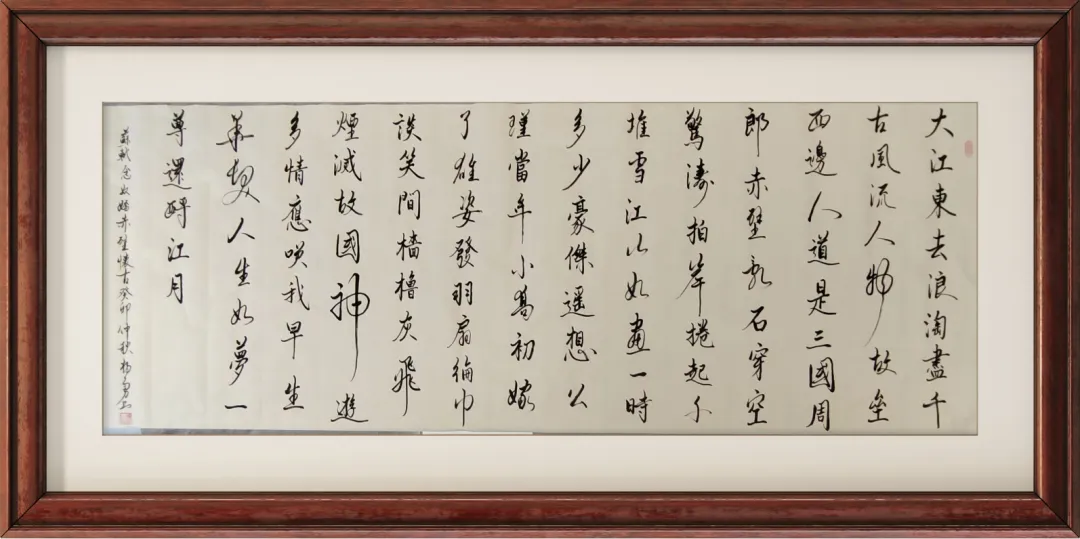 大江東去浪淘盡千
古風流人物故壘
西邊人道是三國周
郎赤壁亂石穿空
驚濤拍岸捲起千
堆雪江山如畫一時
多少豪傑遥想公
瑾當年小喬初嫁
了雄姿發羽扇綸巾
談笑間檣櫓灰飛
煙滅故國神遊
多情應笑我早生
華髮人生如夢一
尊還酹江月
蘇軾念奴嬌赤壁懷古癸卯仲秋楊